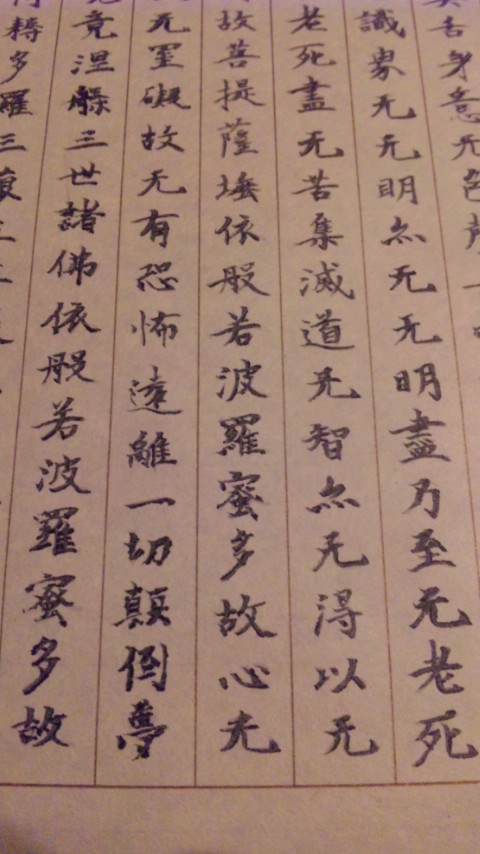 舌身意无色
識界无无明亦无无明盡乃至无老死
老死盡无苦集滅道无智亦无得以无
故菩提薩埵依般若波羅蜜多故心无
无罣礙故无有恐怖遠離一切顛倒夢
竟涅槃三世諸佛依般若波羅蜜多故
耨多羅三